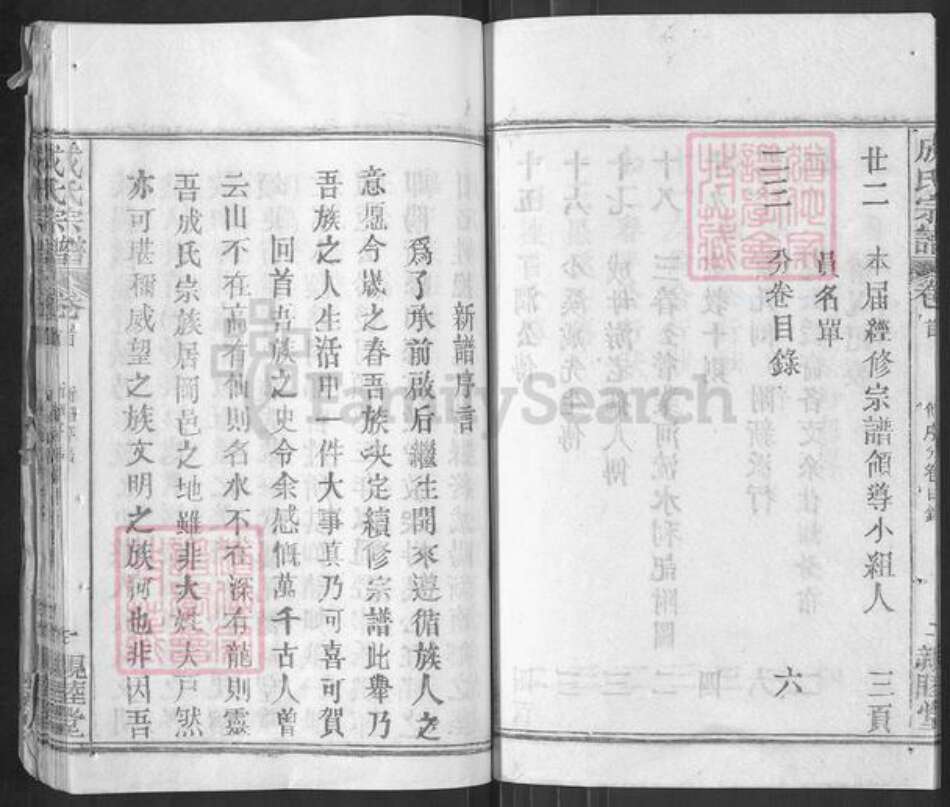 成氏宗譜
卷首
廿二　本届經修宗譜領導小組人
員名單　三頁
二三　分卷目錄　六
新譜序言
爲了承前啟后繼往開來遵循族人之
意愿今歲之春吾族決定續修宗譜此舉乃
吾族之人生活中一件大事真乃可喜可賀
回首吾族之史令余感慨萬千古人曾
云山不在高有仙則名水不在深有龍則靈
吾成氏宗族居岡邑之地雖非大姓大戶然
亦可堪稱威望之族文明之族何也非因吾
成氏宗譜
卷首
親睦堂
FamilySearch